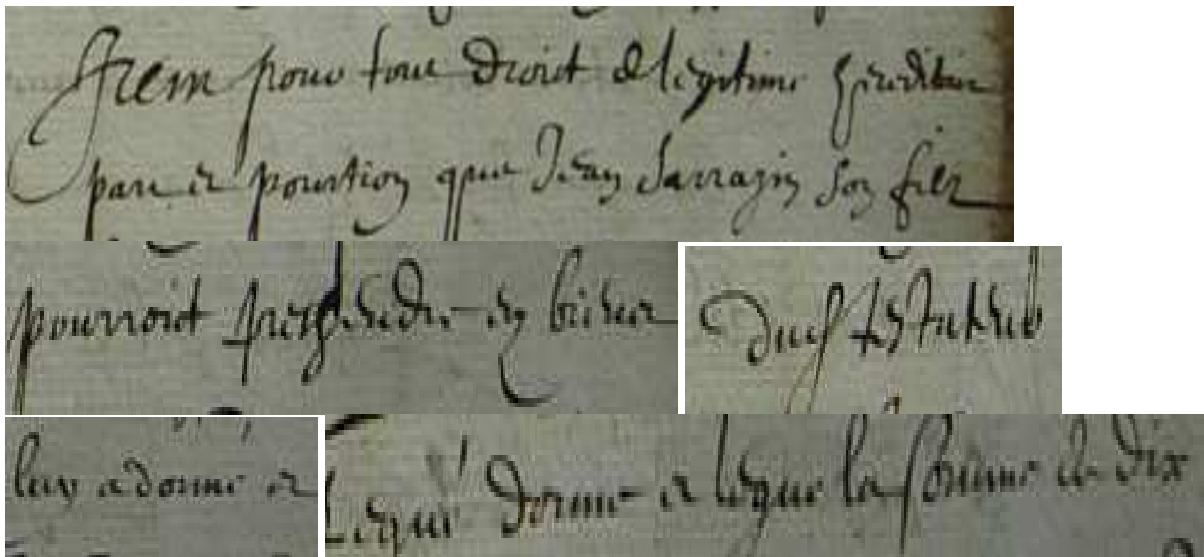 Item pour tout droit de legitime hereditaire
part et pourtion que Jean Sarrazin son filz
pourroit prethendre en biens
dud testateur
luy a donné et
Legué donne et legue la somme de dix